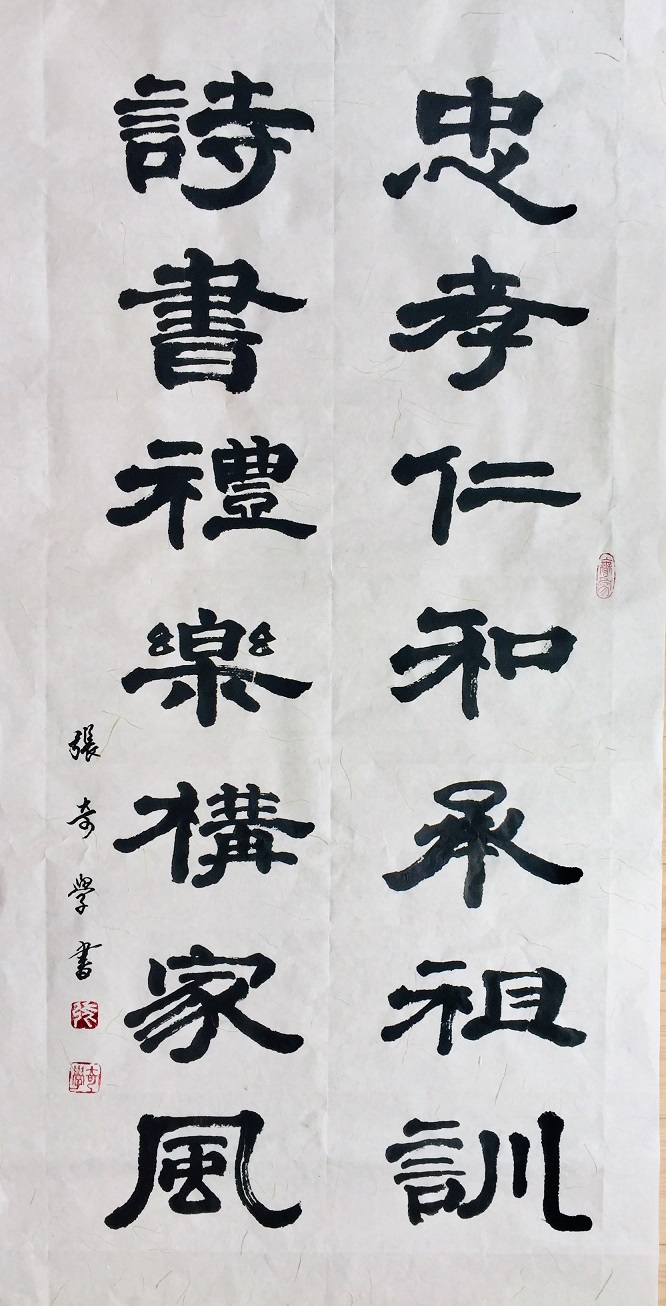 忠孝仁和承祖訓
詩書禮樂構家風
張奇學書